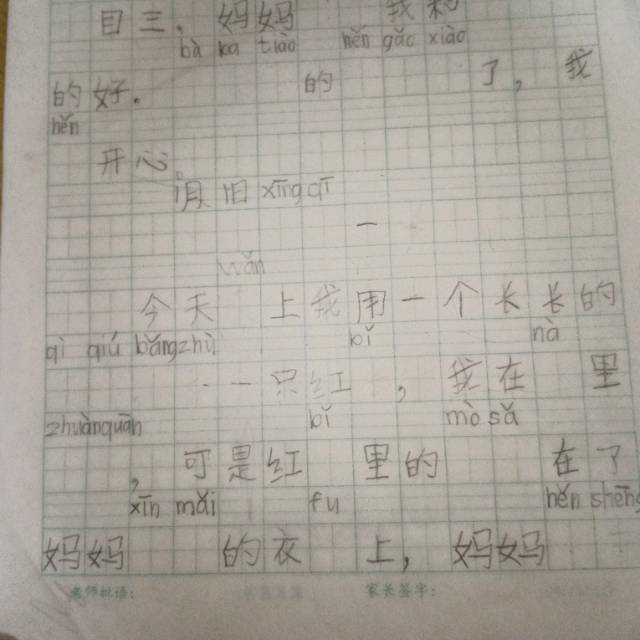 妈妈 我和
hěn gāo xiào
的好. 的 了, 我
hěn
开心
月 日 xīngqī
一
wǎn
今天 上我用一个长长的
qì qiú bǐ nà
一只红 , 我在 里
zhuànquān bǐ mò sǎ
, 可是红 里的 在了
xīn mǎi fu hěn shēng
妈妈 的衣 上, 妈妈
老师批语: 家长签字: